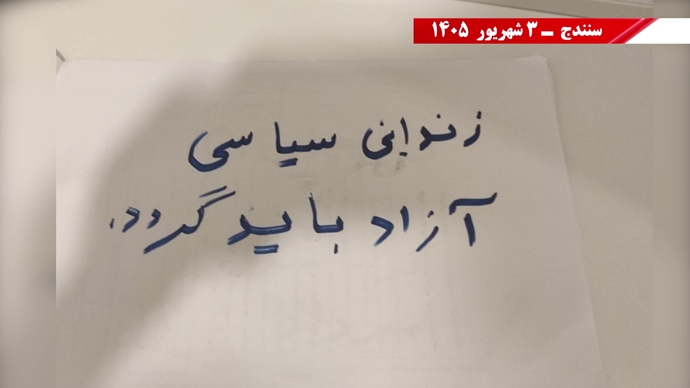 سنندج ـ ۳ شهریور ۱۴۰۵
زندانی سیاسی
آزاد باید گردد.